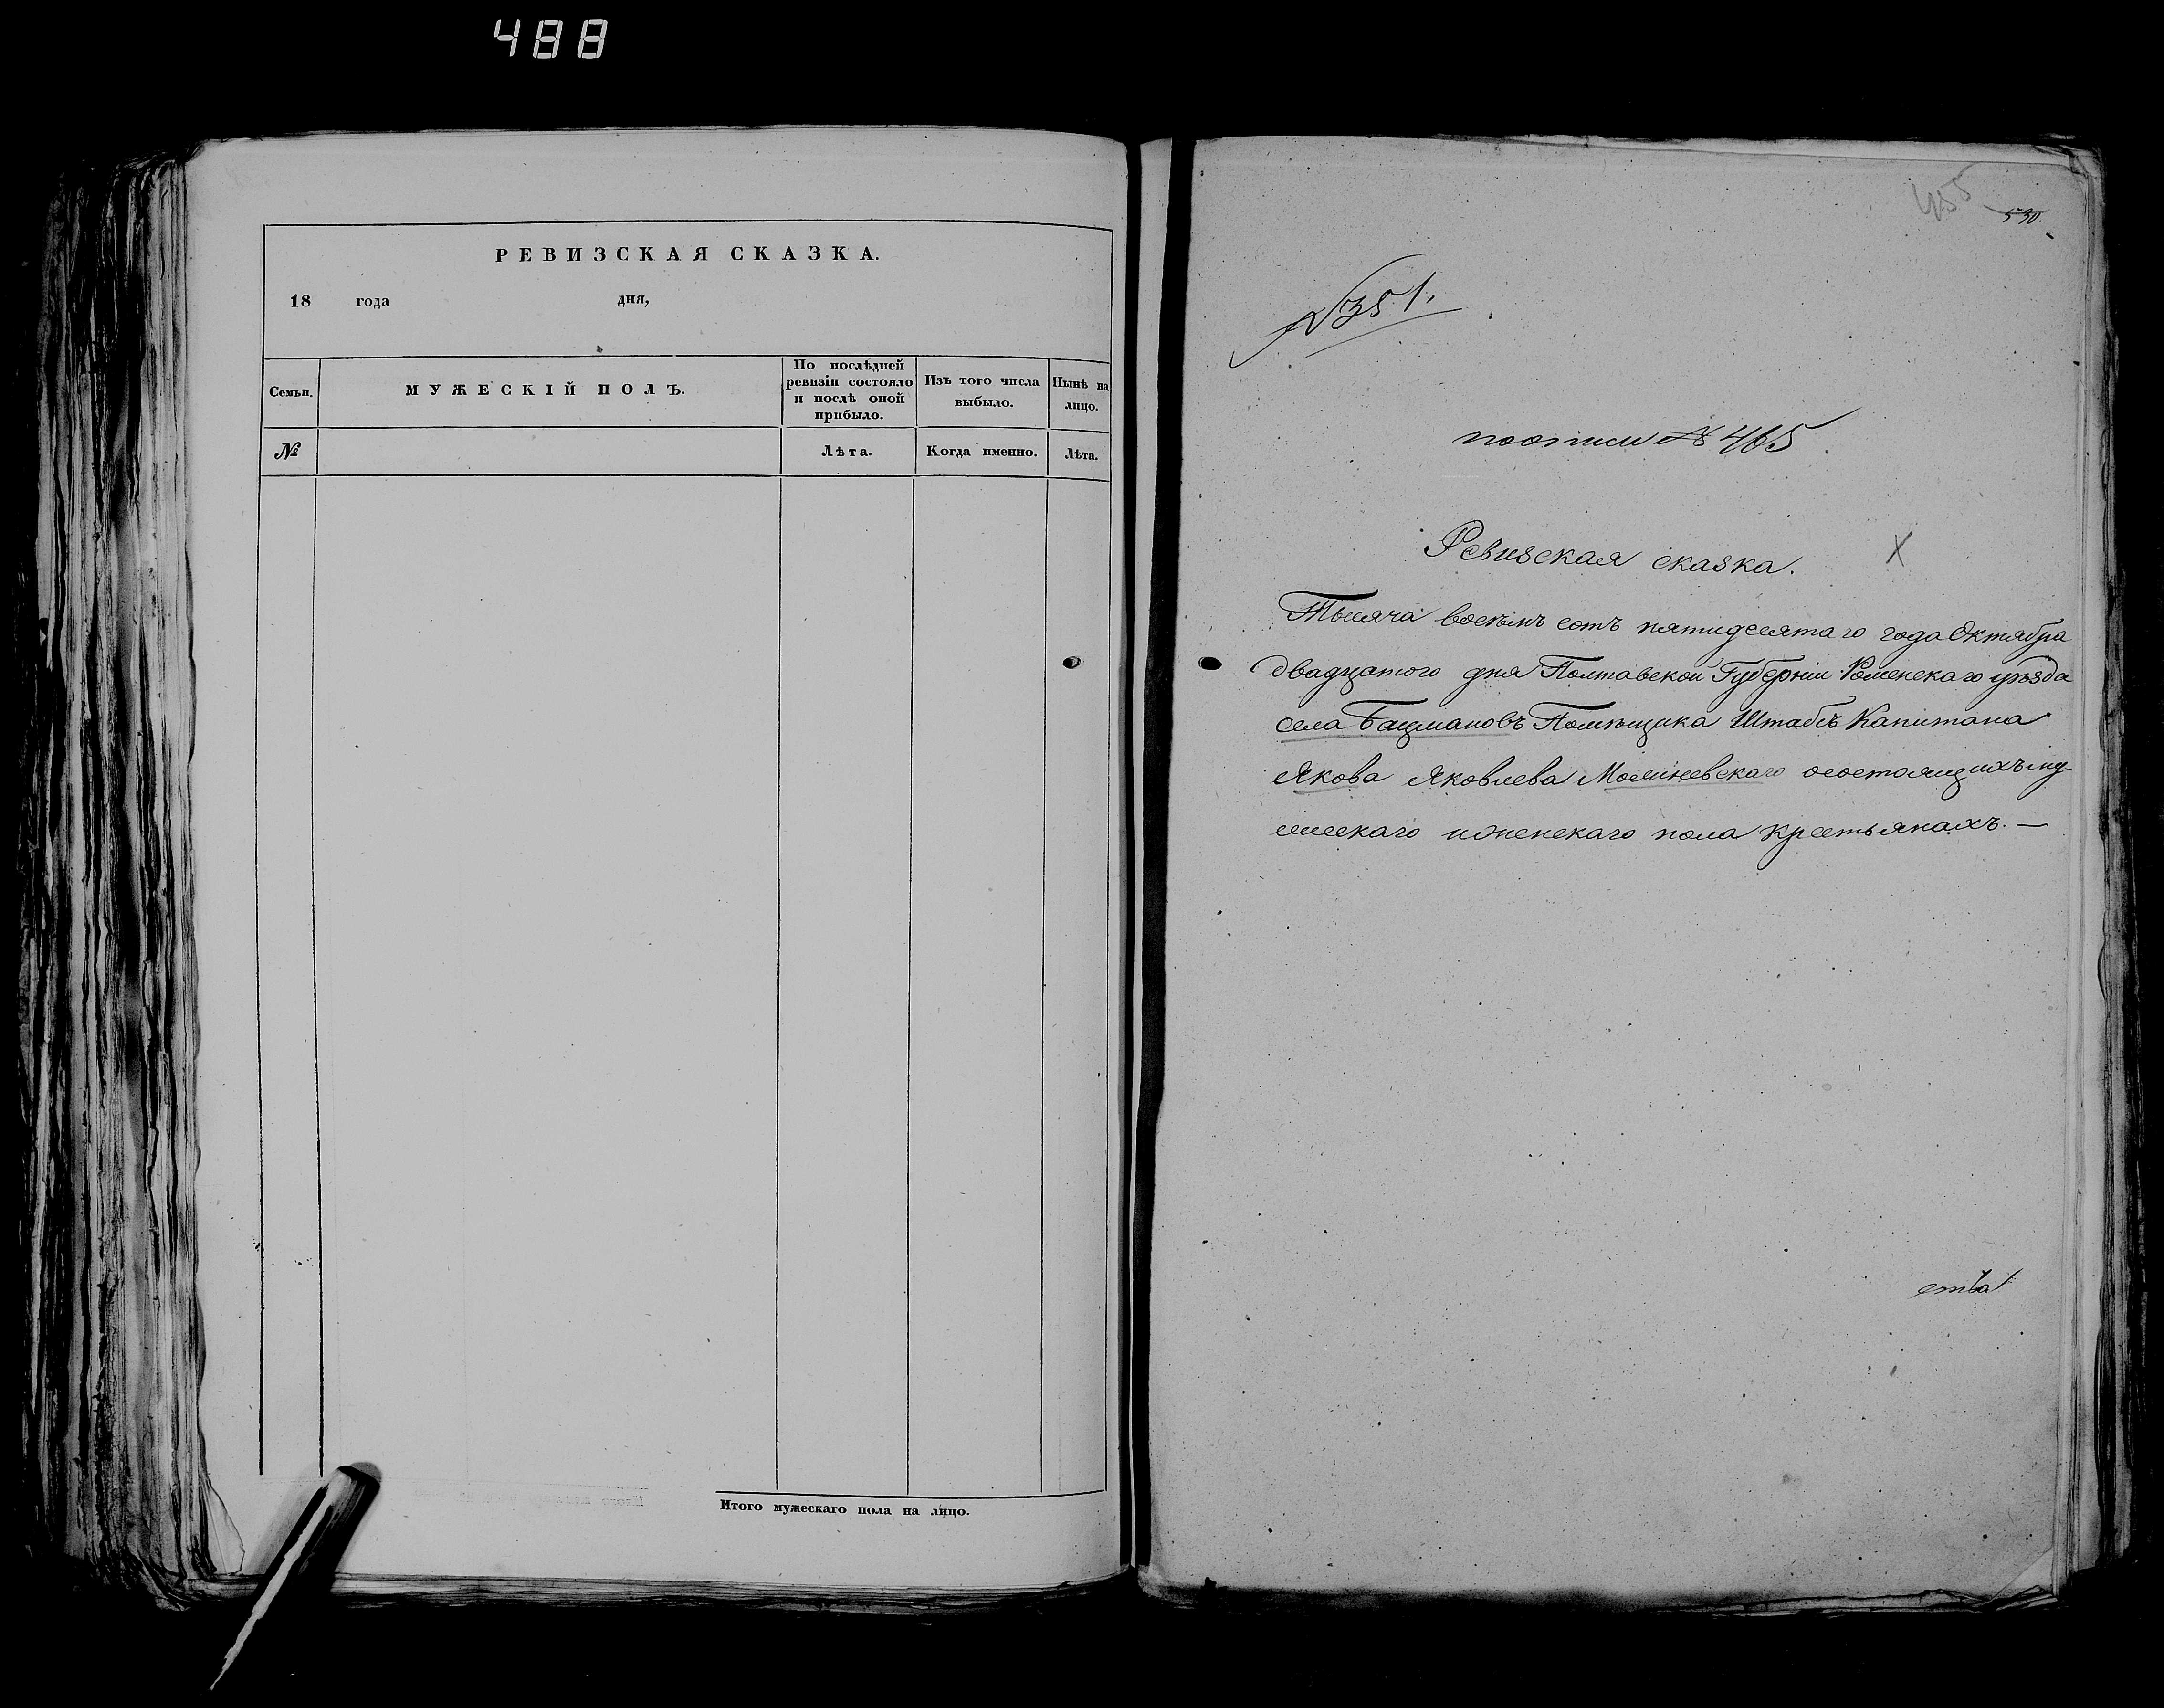 488
РЕВИЗСКАЯ СКАЗКА.
18 года дня,
Семьи.
МУЖЕСКІЙ ПОЛЪ.
По послѣдней
ревизіи состояло
и послѣ оной
прибыло.
Изъ того числа
выбыло.
Нынѣ на
лицо.
№
Лѣта.
Когда именно.
Лѣта.
Итого мужескаго пола на лицо.
455
530.
№351.
по описи № 465
Ревизская сказка. X
Тысяча восемъ сотъ пятидесятаго года Октября
двадцатого дня Полтавской Губерніи Роменскаго уѣзда
села Бацмановъ Помѣщика Штабсъ Капитана
Якова Яковлева осостоящихъ му-
жескаго и женскаго пола крестьянахъ. —